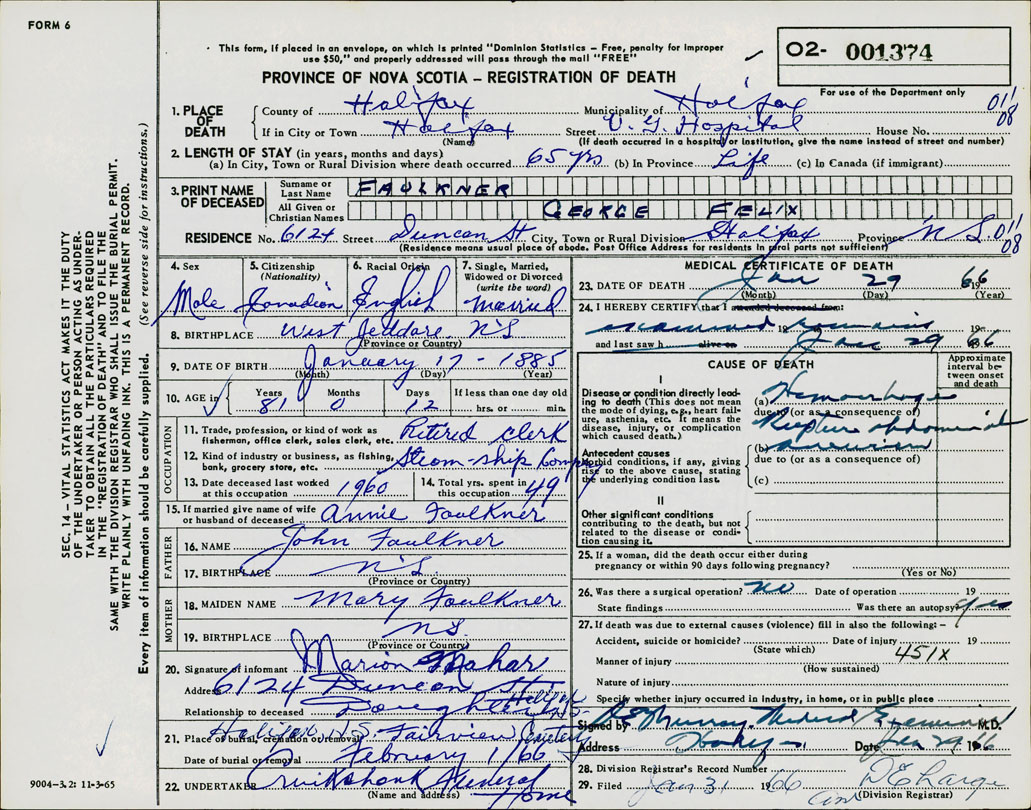 FORM 6
This form, if placed in an envelope, on which is printed "Dominion Statistics – Free, penalty for improper
use $50," and properly addressed will pass through the mail "FREE"
O2- 001374
PROVINCE OF NOVA SCOTIA – REGISTRATION OF DEATH
For use of the Department only
011
08
1. PLACE OF DEATH
County of Halifax Municipality of Halifax
If in City or Town Halifax Street V. G. Hospital House No.
(Name) (If death occurred in a hospital or institution, give the name instead of street and number)
2. LENGTH OF STAY (in years, months and days)
(a) In City, Town or Rural Division where death occurred 65 yrs (b) In Province Life (c) In Canada (if immigrant)
3. PRINT NAME OF DECEASED
Surname or Last Name FAULKNER
All Given or Christian Names GEORGE FELIX
RESIDENCE No. 6124 Street Duncan St City, Town or Rural Division Halifax Province N.S. 011
(Residence means usual place of abode. Post Office Address for residents in rural parts not sufficient) 08
4. Sex Male
5. Citizenship (Nationality) Canadian
6. Racial Origin English
7. Single, Married, Widowed or Divorced (write the word) Married
8. BIRTHPLACE West Jeddore, N.S
(Province or Country)
9. DATE OF BIRTH January 17 - 1885
(Month) (Day) (Year)
10. AGE in Years 81 Months 0 Days 12 If less than one day old hrs. or min.
OCCUPATION
11. Trade, profession, or kind of work as fisherman, office clerk, sales clerk, etc. Retired Clerk
12. Kind of industry or business, as fishing, bank, grocery store, etc. Steam-ship Company
13. Date deceased last worked at this occupation 1960
14. Total yrs. spent in this occupation 49
15. If married give name of wife or husband of deceased Annie Faulkner
FATHER
16. NAME John Faulkner
17. BIRTHPLACE N.S.
(Province or Country)
MOTHER
18. MAIDEN NAME Mary Faulkner
19. BIRTHPLACE N.S.
(Province or Country)
20. Signature of informant Marion Mahar
Address 6124 Duncan St. Halifax
Relationship to deceased Daughter
21. Place of burial, cremation or removal Halifax N.S. Fairview Cemetery
Date of burial or removal February 1/66
22. UNDERTAKER Cruikshank Funeral Home
(Name and address)
MEDICAL CERTIFICATE OF DEATH
23. DATE OF DEATH Jan 29 1966
(Month) (Day) (Year)
24. I HEREBY CERTIFY that I attended deceased from:
examined 19 remains 19
and last saw h alive on Jan 29 1966
CAUSE OF DEATH
Approximate interval between onset and death
I
Disease or condition directly leading to death (This does not mean the mode of dying, e.g., heart failure, asthenia, etc. It means the disease, injury, or complication which caused death.)
(a) Hemorrhage
due to (or as a consequence of)
Rupture abdominal
Antecedent causes
Morbid conditions, if any, giving rise to the above cause, stating the underlying condition last.
(b) aneurism
due to (or as a consequence of)
(c)
II
Other significant conditions
contributing to the death, but not related to the disease or condition causing it.
25. If a woman, did the death occur either during
pregnancy or within 90 days following pregnancy?
(Yes or No)
26. Was there a surgical operation? no Date of operation 19
State findings Was there an autopsy? yes
27. If death was due to external causes (violence) fill in also the following: –
Accident, suicide or homicide? Date of injury 19
(State which) 451X
Manner of injury
(How sustained)
Nature of injury
Specify whether injury occurred in industry, in home, or in public place
Signed by Murray Medical Examiner M.D.
Address Date Jan 29 1966
28. Division Registrar's Record Number
29. Filed Jan 31 1966
(Division Registrar)
SEC. 14 – VITAL STATISTICS ACT MAKES IT THE DUTY
OF THE UNDERTAKER OR PERSON ACTING AS UNDER-
TAKER TO OBTAIN ALL THE PARTICULARS REQUIRED
IN THE "REGISTRATION OF DEATH" AND TO FILE THE
SAME WITH THE DIVISION REGISTRAR WHO SHALL ISSUE THE BURIAL PERMIT.
WRITE PLAINLY WITH UNFADING INK. THIS IS A PERMANENT RECORD.
Every item of information should be carefully supplied. (See reverse side for instructions.)
9004–3.2: 11-3-65